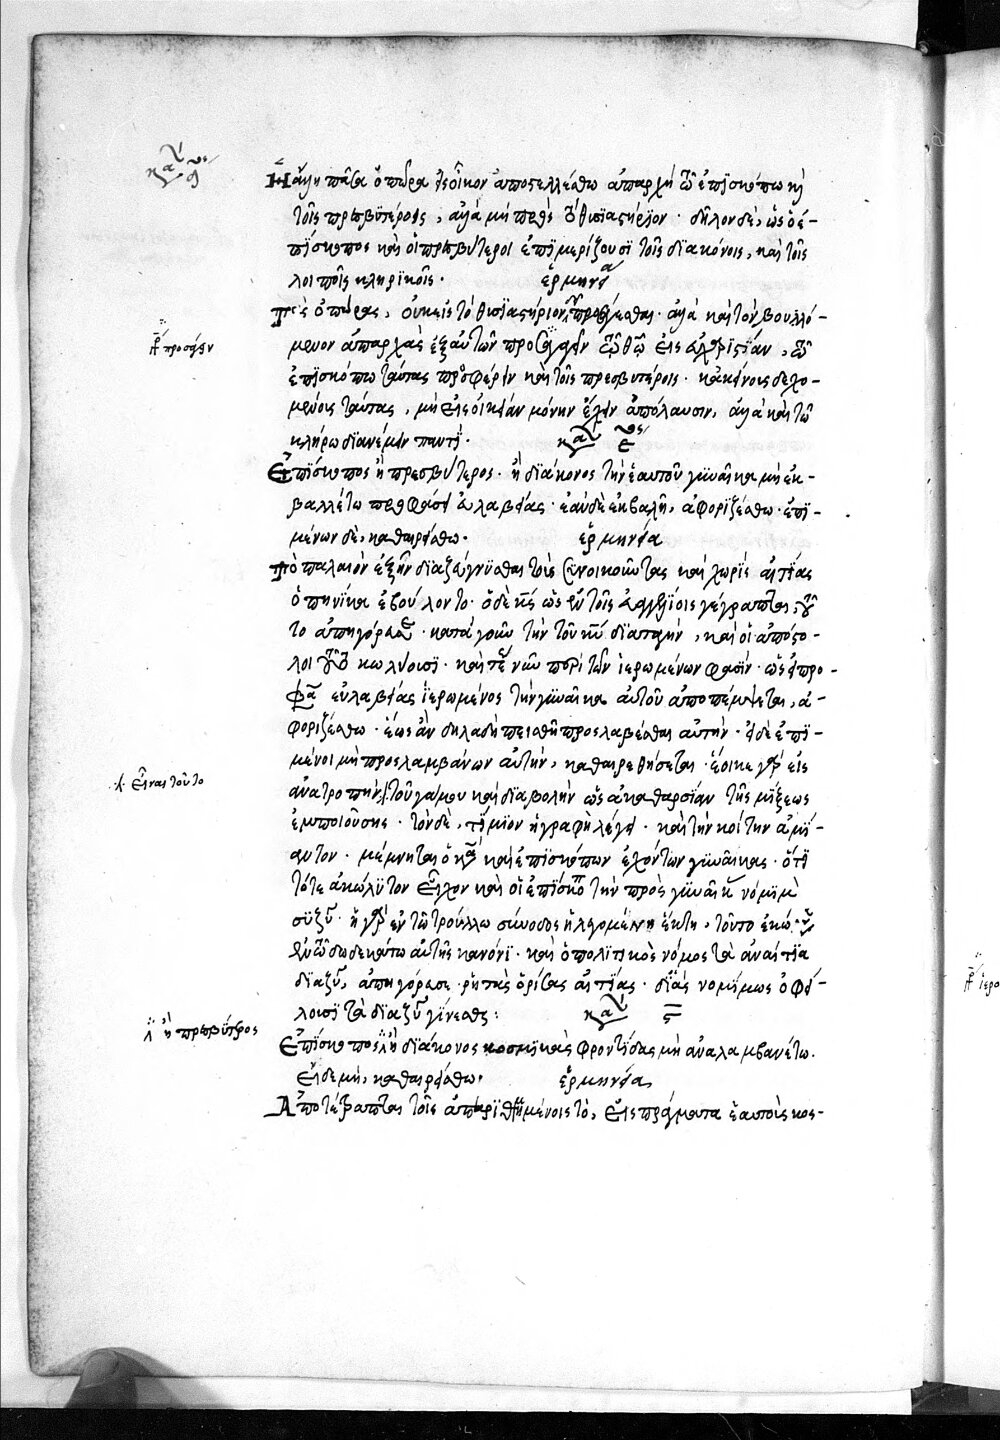 καν δος
Ἡ ἄλλη πᾶσα ὀπώρα εἰς οἶκον ἀποστελλέσθω ἀπαρχὴ τῷ ἐπισκόπω κỳ
τοῖς πρεσβυτέροις, ἀλλὰ μὴ πρὸς τὸ θυσιαστήριον· δῆλον δὲ, ὡς ὁ ἐ-
πίσκοπος καὶ οἱ πρεσβύτεροι ἐπιμερίζουσι τοῖς διακόνοις, καὶ τοῖς
λοιποῖς κληρικοῖς· ἑρμηνεία
Τὰς ὀπώρας, οὐκ εἰς τὸ θυσιαστήριον προσάγεσθαι· ἀλλὰ καὶ τὸν βουλλό-
μενον ἀπαρχὰς ἐξ αὐτῶν προσάγειν τῷ θῶ εἰς εὐχαριστίαν, τῷ
ἐπισκόπω ταύτας προσφέρειν καὶ τοῖς πρεσβυτέροις· κἀκείνοις δεχο-
μένοις ταύτας, μὴ εἰς οἰκείαν μόνην ἔχειν ἀπόλαυσιν, ἀλλὰ καὶ τῶ
κλήρω διανέμειν παντί· καν ε
Ἐπίσκοπος ἢ πρεσβύτερος· ἢ διάκονος τὴν ἑαυτοῦ γυναῖκα μὴ ἐκ-
βαλλέτω προφάσει εὐλαβείας· ἐὰν δὲ ἐκβαλῆ, ἀφοριζέσθω· ἐπι-
μένων δὲ, καθαιρείσθω· ἑρμηνεία
Τὸ παλαιὸν ἐξῆν διαζεύγνυσθαι τοὺς συνοικοῦντας καὶ χωρὶς αἰτίας
ὁπηνίκα ἐβούλοντο· ὁ δὲ κς ὡς ἐν τοῖς εὐαγγελίοις γέγραπται,
το ἀπηγόρευσε· κατὰ γοῦν τὴν τοῦ κυ διαταγὴν, καὶ οἱ ἀπόστο-
λοι τοῦτο κωλύουσι· καὶ τε νῦν περὶ τῶν ἱερωμένων φασὶν· ὡς εἰ προ-
φάσει εὐλαβείας ἱερωμένος τὴν γυναῖκα αὐτοῦ ἀποπέμψεται, ἀ-
φοριζέσθω· ἕως ἂν δηλαδὴ πεισθῆ προσλαβέσθαι αὐτὴν· εἰ δὲ ἐπι-
μένοι μὴ προσλαμβάνων αὐτὴν, καθαιρεθήσεται· ἔοικε γὰρ εἰς
ἀνατροπὴν τοῦ γάμου καὶ διαβολὴν ὡς ἀκαθαρσίαν τῆς μίξεως
ἐμποιούσης· τὸν δὲ, τίμιον ἡ γραφὴ λέγει· καὶ τὴν κοίτην ἀμί-
αντον· μέμνηται ὁ κα καὶ ἐπισκόπων ἐχόντων γυναῖκας· ὅτι
τότε ἀκώλυτον εἶχον καὶ οἱ ἐπίσκοποι τὴν πρὸς γυναῖκ νόμιμ
συζυ· ἡ γὰρ ἐν τῶ τρούλλω σύνοδος ἡ λεγομένη ἕκτη, τοῦτο ἐκώλυσεν
ἐν τῶ δωδεκάτω αὐτῆς κανόνι· καὶ ὁ πολιτικὸς νόμος τὰ ἀναίτια
διαζυ, ἀπηγόρευσε· ῥητὰς ὁρίσας αἰτίας· δι' ἃς νομίμως ὀφεί-
λουσι τὰ διαζυ γίνεσθαι: καν ς
Ἐπίσκοπος ἢ διάκονος κοσμικὰς φροντίδας μὴ ἀναλαμβανέτω.
Εἰ δὲ μὴ, καθαιρείσθω· ἑρμηνεία
Ἀποτέτραπται τοῖς ἀπηριθμημένοις τὸ, εἰς πράγματα ἑαυτοὺς κοσ-
γρ προσάγειν
λ εἶναι τοῦτο
λ ἢ πρεσβύτερος
γρ ἱερο